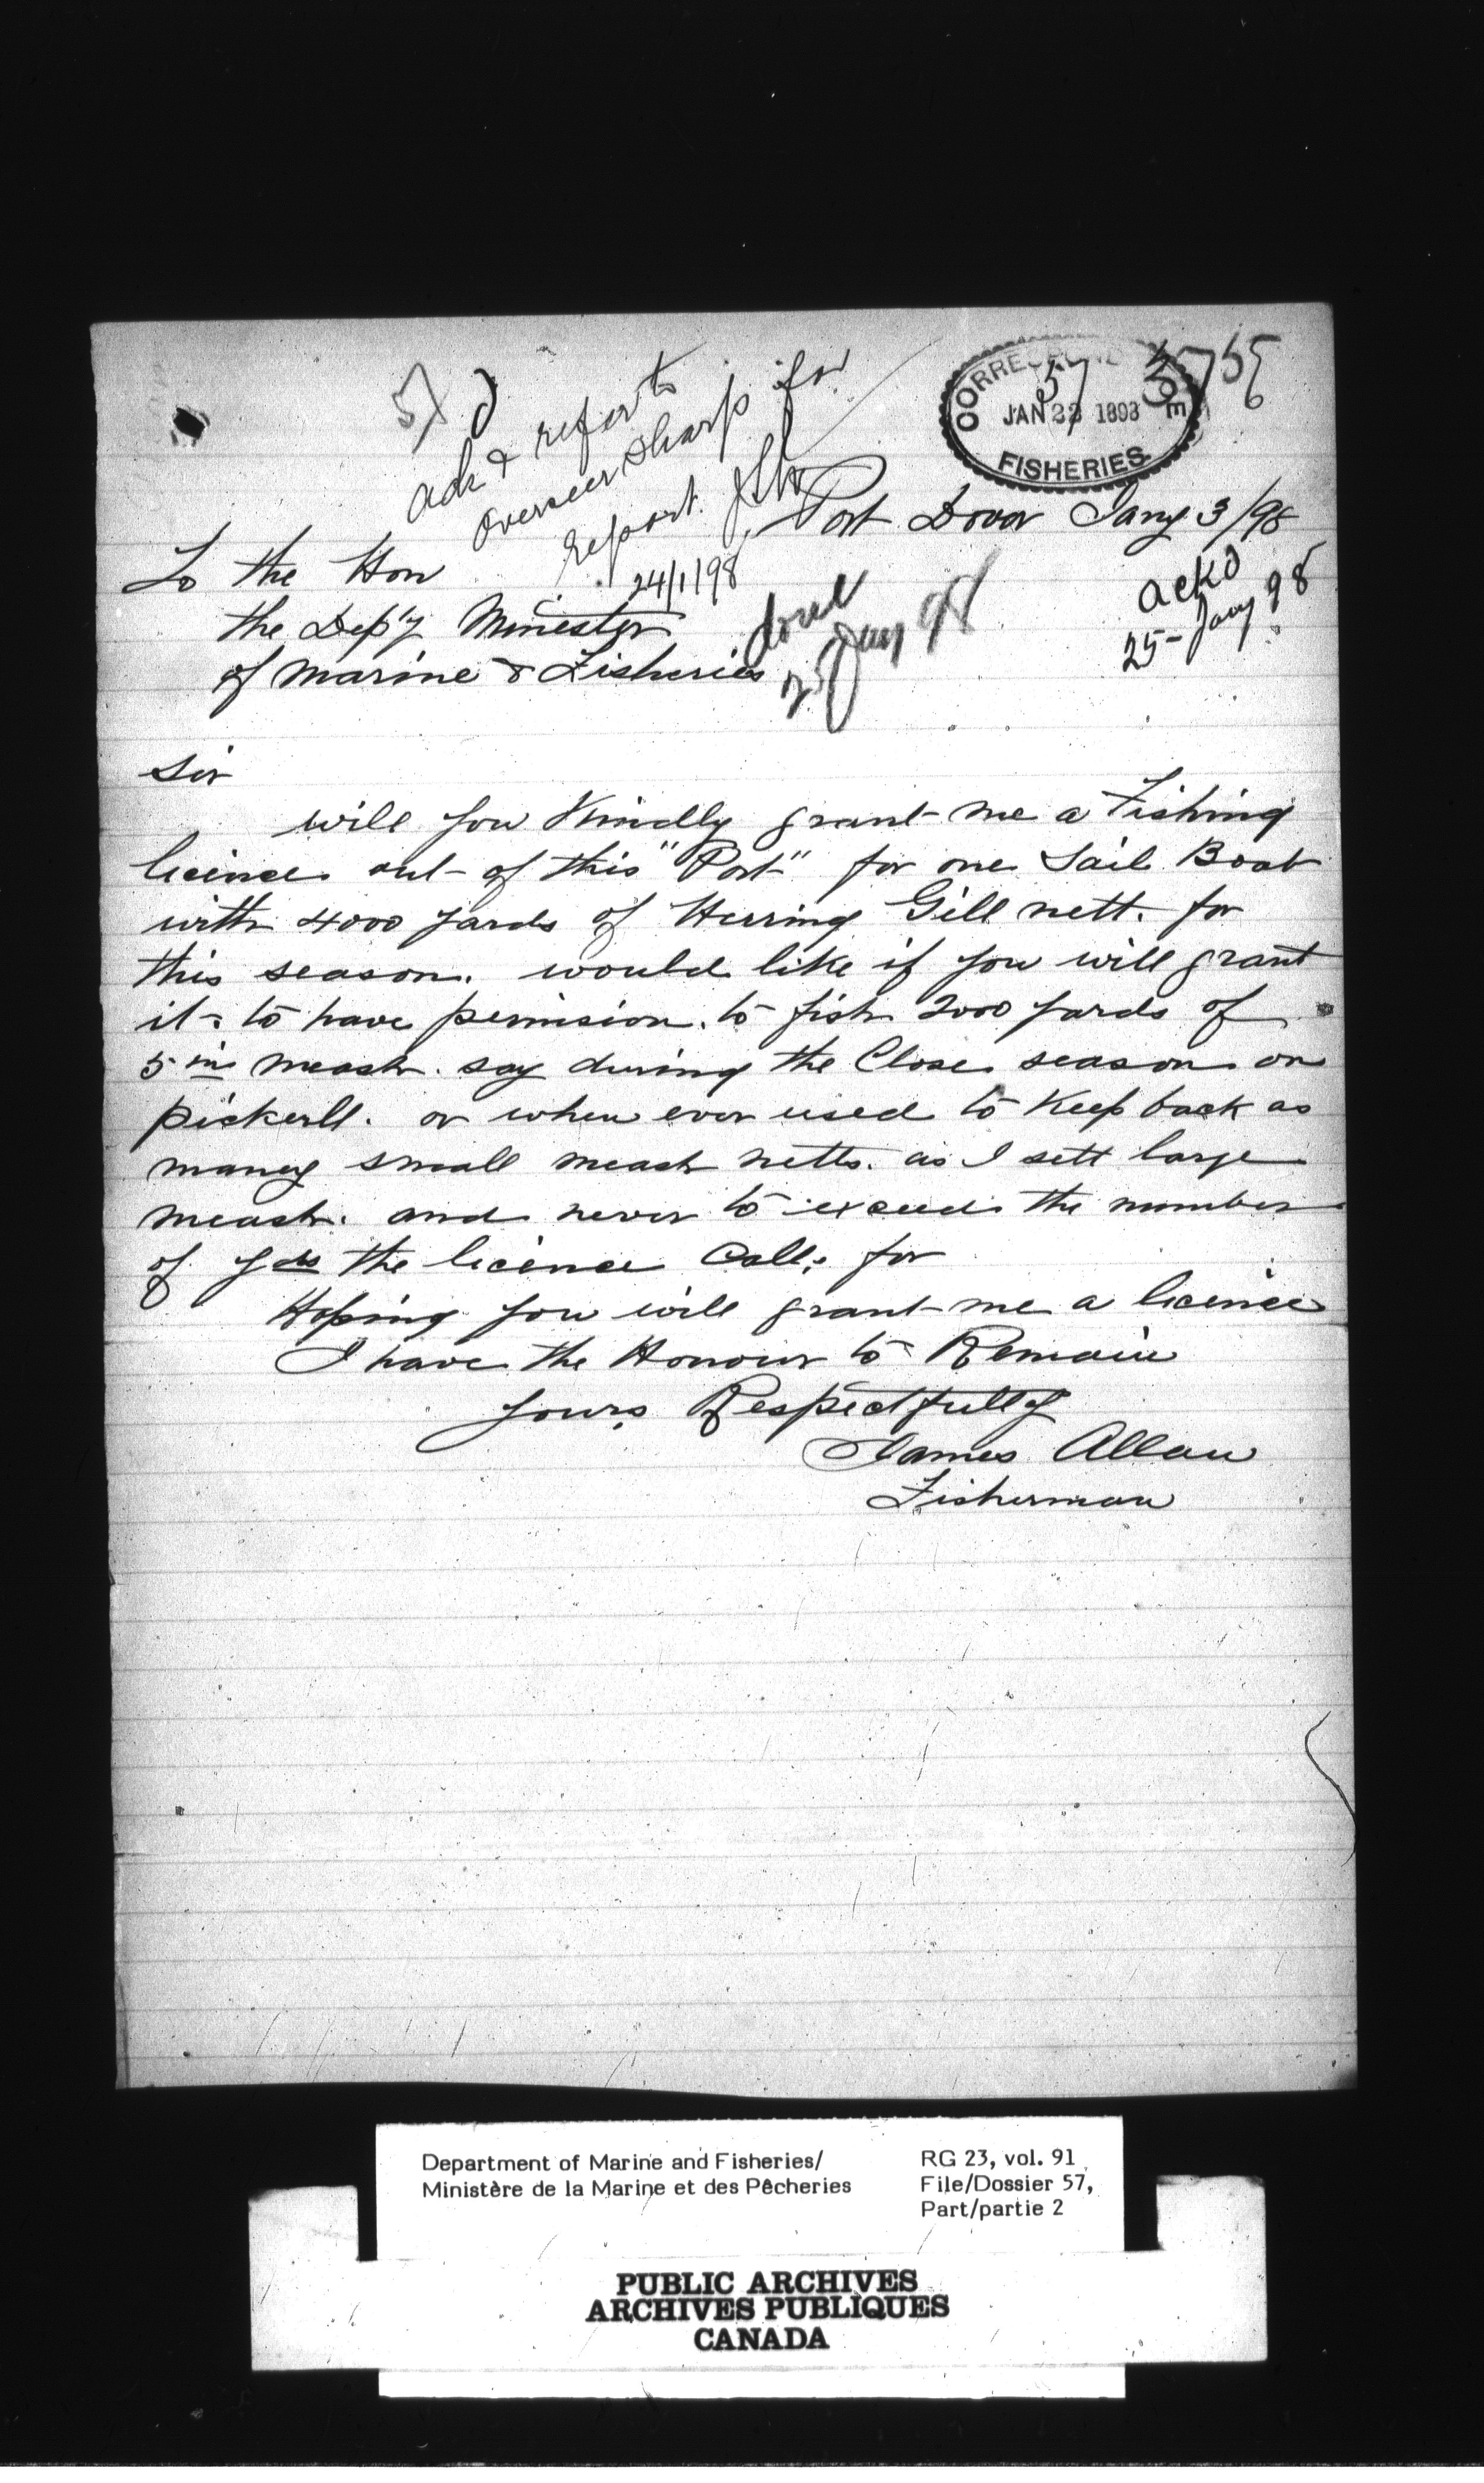 57
ack & refer to
Overseer Sharp for
report.
24/1/98
CORRESPONDENCE
57
JAN 22 1898
FISHERIES
Port Dover Jany 3/98
To the Hon
the Dep'y Minester
of Marine & Fisheries
done
25 Jany 98
ackd
25- Jany 98
Sir
will you Kindly grant me a Fishing
licence out of this "Port" for one Sail Boat
with 4000 yards of Herring Gill nett. for
this season. would like if you will grant
it to have permision. to fish 2000 yards of
5 in meash. say during the Close season on
pickerll. or when ever used to Keep back as
maney small meash netts. as I sett large
meash. and never to exceed the number
of yds the licence Calls for
Hoping you will grant me a licence
I have the Honour to Remain
yours Respectfully
James Allan
Fisherman
Department of Marine and Fisheries/
Ministère de la Marine et des Pêcheries
RG 23, vol. 91
File/Dossier 57,
Part/partie 2
PUBLIC ARCHIVES
ARCHIVES PUBLIQUES
CANADA